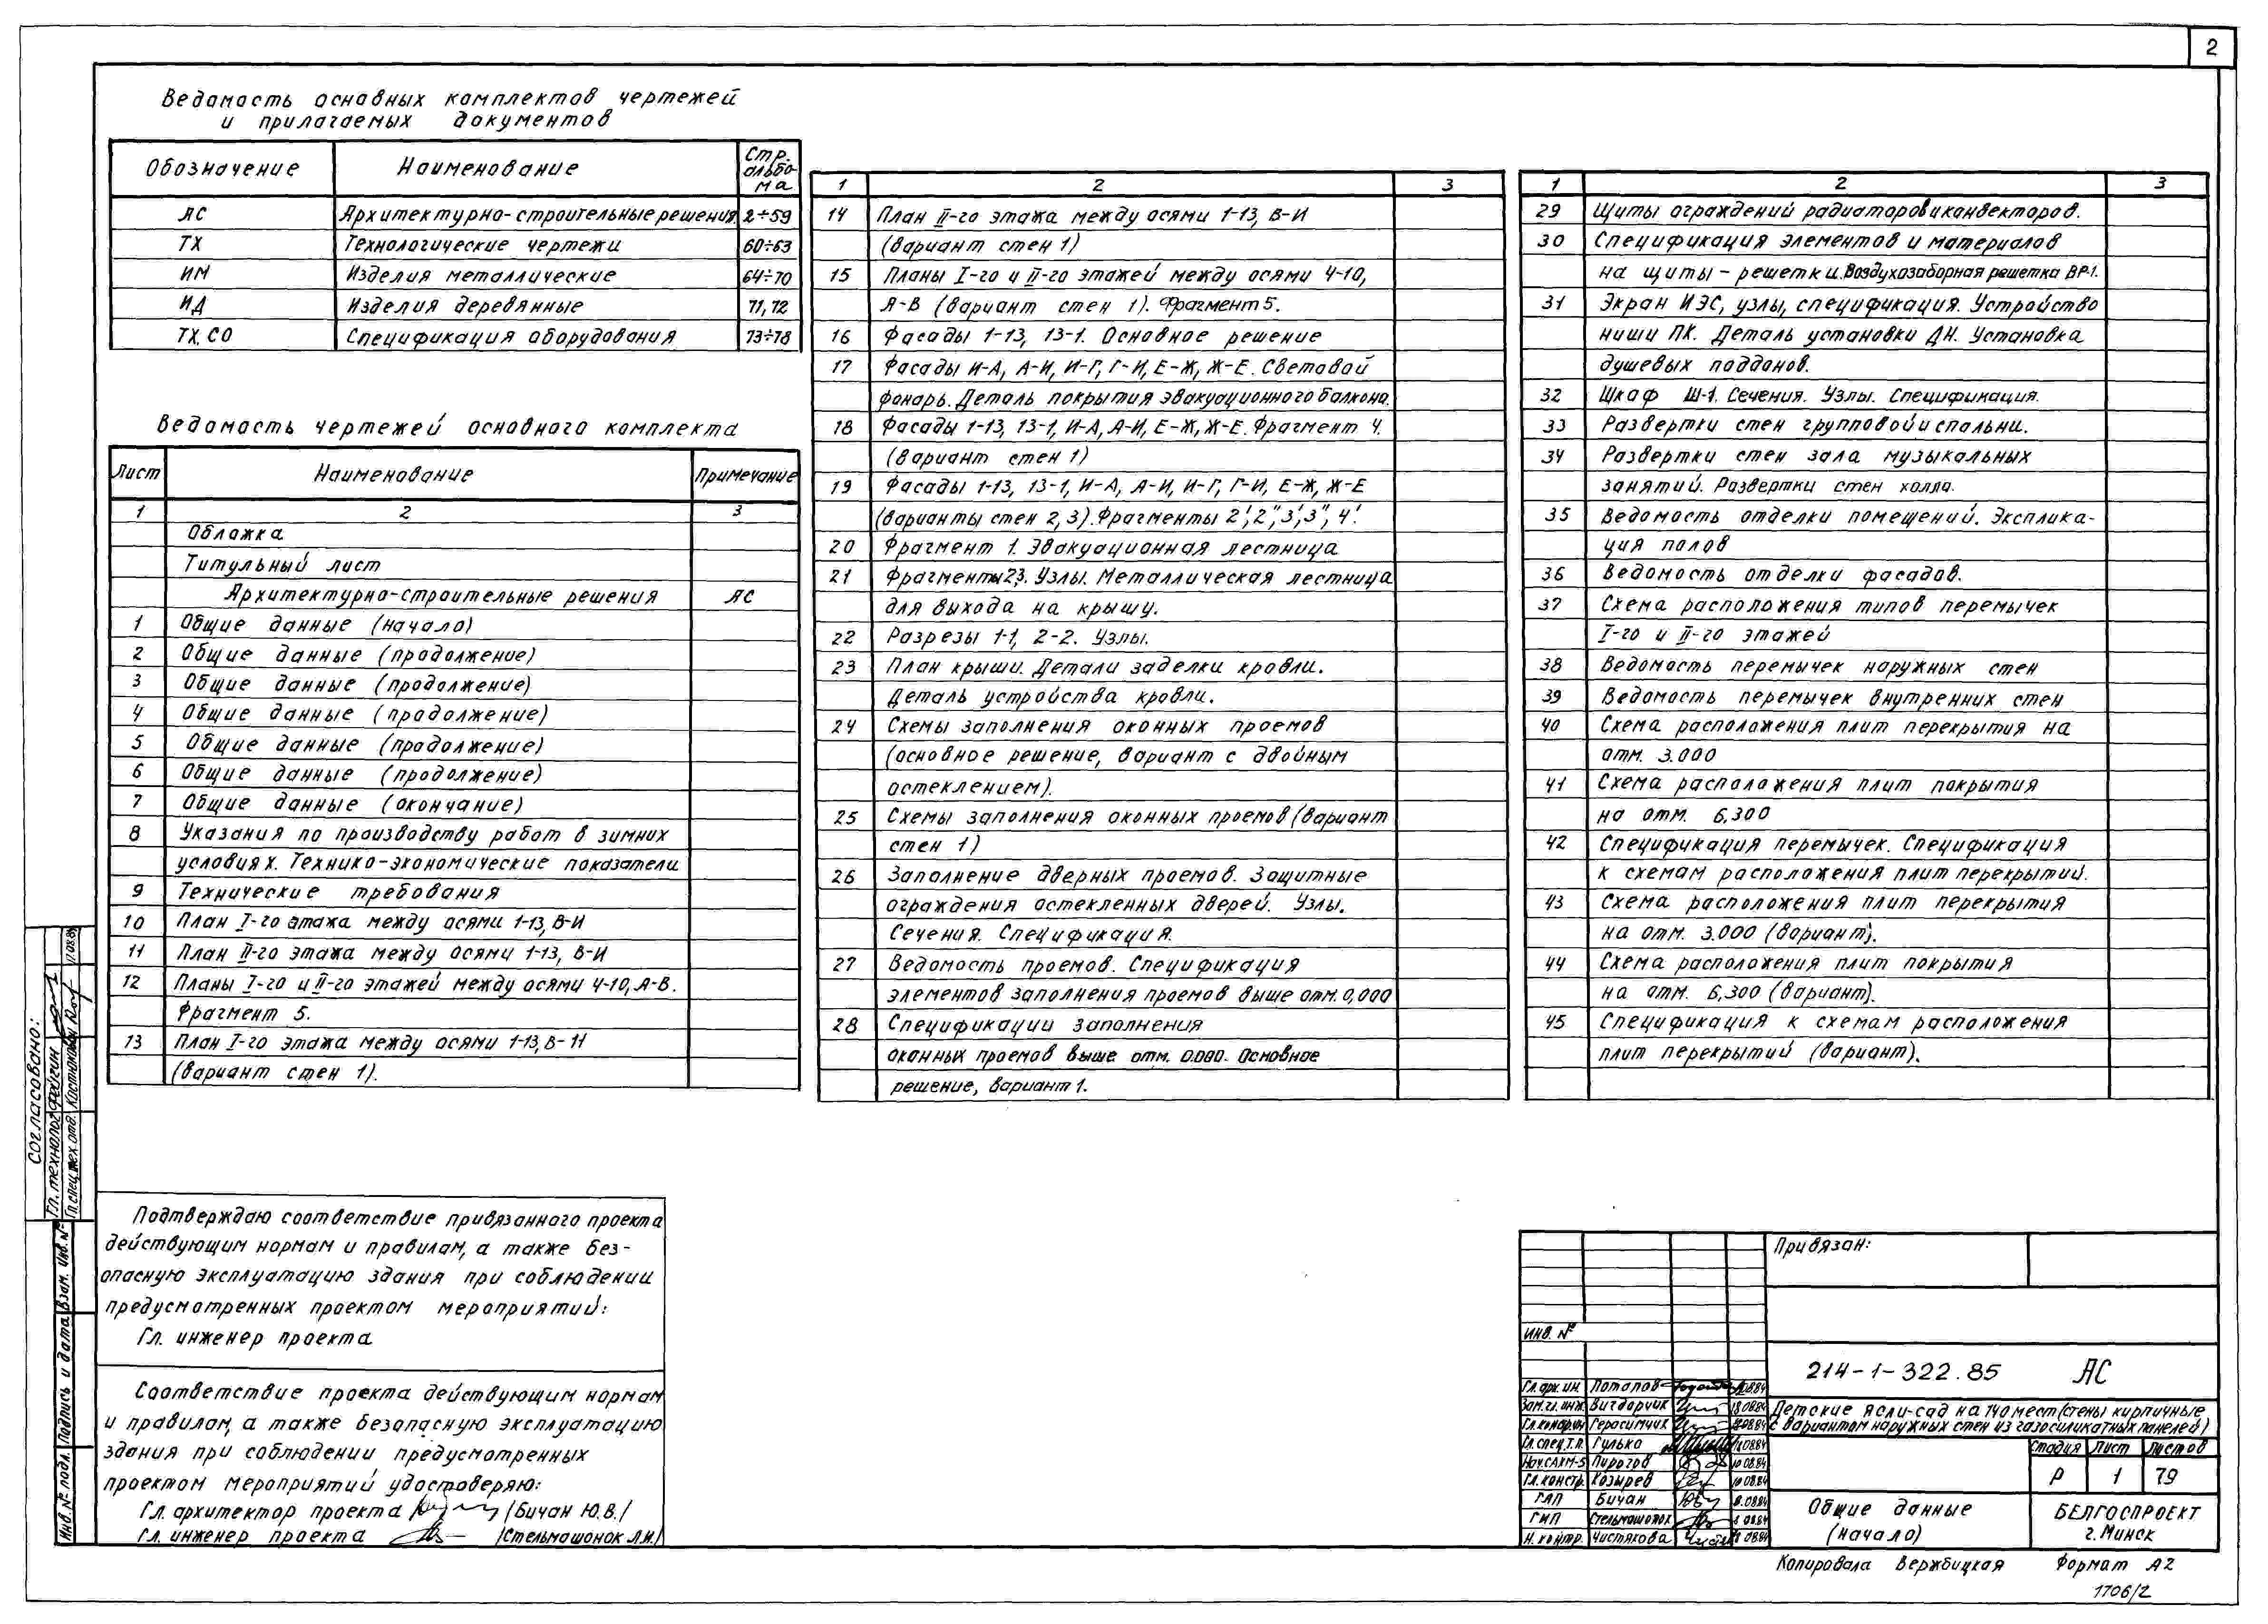 2
Ведомость основных комплектов чертежей
и прилагаемых документов
Обозначение Наименование Стр. альбо-ма
АС Архитектурно-строительные решения. 2÷59
ТХ Технологические чертежи 60÷63
ИМ Изделия металлические 64÷70
ИД Изделия деревянные 71,72
ТХ.СО Спецификация оборудования 73÷78
Ведомость чертежей основного комплекта
Лист Наименование Примечание
1 2 3
Обложка
Титульный лист
Архитектурно-строительные решения АС
1 Общие данные (начало)
2 Общие данные (продолжение)
3 Общие данные (продолжение)
4 Общие данные (продолжение)
5 Общие данные (продолжение)
6 Общие данные (продолжение)
7 Общие данные (окончание)
8 Указания по производству работ в зимних
условиях. Технико-экономические показатели
9 Технические требования
10 План I-го этажа между осями 1-13, В-И
11 План II-го этажа между осями 1-13, В-И
12 Планы I-го и II-го этажей между осями 4-10, А-В.
Фрагмент 5.
13 План I-го этажа между осями 1-13, В-И
(вариант стен 1).
1 2 3
14 План II-го этажа между осями 1-13, В-И
(вариант стен 1)
15 Планы I-го и II-го этажей между осями 4-10,
А-В (вариант стен 1). Фрагмент 5.
16 Фасады 1-13, 13-1. Основное решение
17 Фасады И-А, А-И, И-Г, Г-И, Е-Ж, Ж-Е. Световой
фонарь. Деталь покрытия эвакуационного балкона.
18 Фасады 1-13, 13-1, И-А, А-И, Е-Ж, Ж-Е. Фрагмент 4.
(вариант стен 1)
19 Фасады 1-13, 13-1, И-А, А-И, И-Г, Г-И, Е-Ж, Ж-Е
(варианты стен 2, 3). Фрагменты 2', 2", 3', 3", 4'.
20 Фрагмент 1. Эвакуационная лестница
21 Фрагменты 2,3. Узлы. Металлическая лестница
для выхода на крышу.
22 Разрезы 1-1, 2-2. Узлы.
23 План крыши. Детали заделки кровли.
Деталь устройства кровли.
24 Схемы заполнения оконных проемов
(основное решение, вариант с двойным
остеклением).
25 Схемы заполнения оконных проемов (вариант
стен 1)
26 Заполнение дверных проемов. Защитные
ограждения остекленных дверей. Узлы.
Сечения. Спецификация.
27 Ведомость проемов. Спецификация
элементов заполнения проемов выше отм. 0,000
28 Спецификации заполнения
оконных проемов выше отм. 0.000. Основное
решение, вариант 1.
1 2 3
29 Щиты ограждений радиаторов и конвекторов.
30 Спецификация элементов и материалов
на щиты-решетки. Воздухозаборная решетка ВР-1.
31 Экран ИЭС, узлы, спецификация. Устройство
ниши ПК. Деталь установки ДН. Установка
душевых поддонов.
32 Шкаф Ш-1. Сечения. Узлы. Спецификация.
33 Развертки стен групповой и спальни.
34 Развертки стен зала музыкальных
занятий. Развертки стен холла.
35 Ведомость отделки помещений. Эксплика-
ция полов
36 Ведомость отделки фасадов.
37 Схема расположения типов перемычек
I-го и II-го этажей
38 Ведомость перемычек наружных стен
39 Ведомость перемычек внутренних стен
40 Схема расположения плит перекрытия на
отм. 3.000
41 Схема расположения плит покрытия
на отм. 6,300
42 Спецификация перемычек. Спецификация
к схемам расположения плит перекрытий.
43 Схема расположения плит перекрытия
на отм. 3.000 (вариант).
44 Схема расположения плит покрытия
на отм. 6,300 (вариант).
45 Спецификация к схемам расположения
плит перекрытий (вариант).
Подтверждаю соответствие привязанного проекта
действующим нормам и правилам, а также без-
опасную эксплуатацию здания при соблюдении
предусмотренных проектом мероприятий:
Гл. инженер проекта
Соответствие проекта действующим нормам
и правилам, а также безопасную эксплуатацию
здания при соблюдении предусмотренных
проектом мероприятий удостоверяю:
Гл. архитектор проекта /Бичан Ю.В./
Гл. инженер проекта /Стельмашонок Л.И./
Согласовано:
Гл. технолог Фейгин
Гл. спец. тех. отд. 17.08.84
Взам. инв. №
Подпись и дата
Инв. № подл.
Привязан:
Инв. №
214-1-322.85 АС
Гл. арх. ин. Потапов 08.84
Зам. гл. инж. Вигдорчик 08.84
Гл. конс. ин. Герасимчик 08.84
Гл. спец. т.п. Гулько 08.84
Нач. САКМ-5 Пирогов 10 08.84
Гл. констр. Козырев 10 08.84
ГАП Бичан 8.08.84
ГИП Стельмашонок 8 08.84
Н. контр. Чистякова 8 08.84
Детские ясли-сад на 140 мест (стены кирпичные
с вариантом наружных стен из газосиликатных панелей)
Стадия Лист Листов
Р 1 79
Общие данные
(начало)
БЕЛГОСПРОЕКТ
г. Минск
Копировала Вержбицкая Формат А2
1706/2